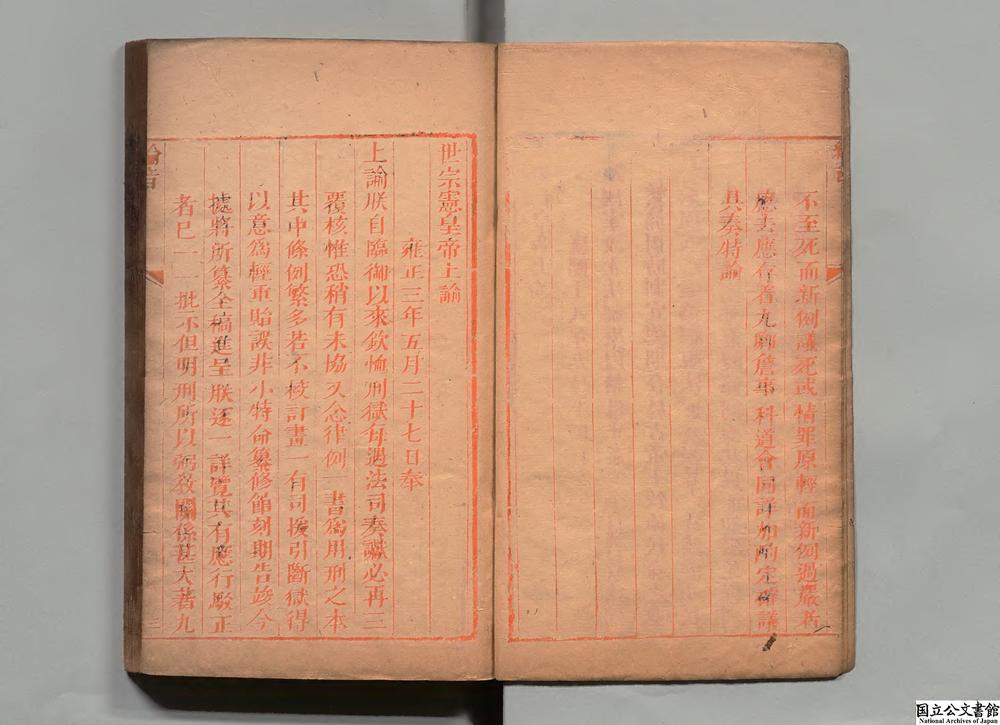 不至死而新例議死或情罪原輕而新例過嚴者
應去應存著九卿詹事科道會同詳加酌定確議
具奏特諭
世宗憲皇帝上諭
雍正三年五月二十七日奉
上諭朕自臨御以來欽恤刑獄每遇法司奏讞必再三
覆核惟恐稍有未協又念律例一書為用刑之本
其中條例繁多若不校訂畫一有司援引斷獄得
以意為輕重貽誤非小特命纂修館刻期告竣今
據將所纂全稿進呈朕逐一詳覽其有應行駁正
者已一一批示但明刑所以弼教關係甚大著九
三
国立公文書館
National Archives of Japan